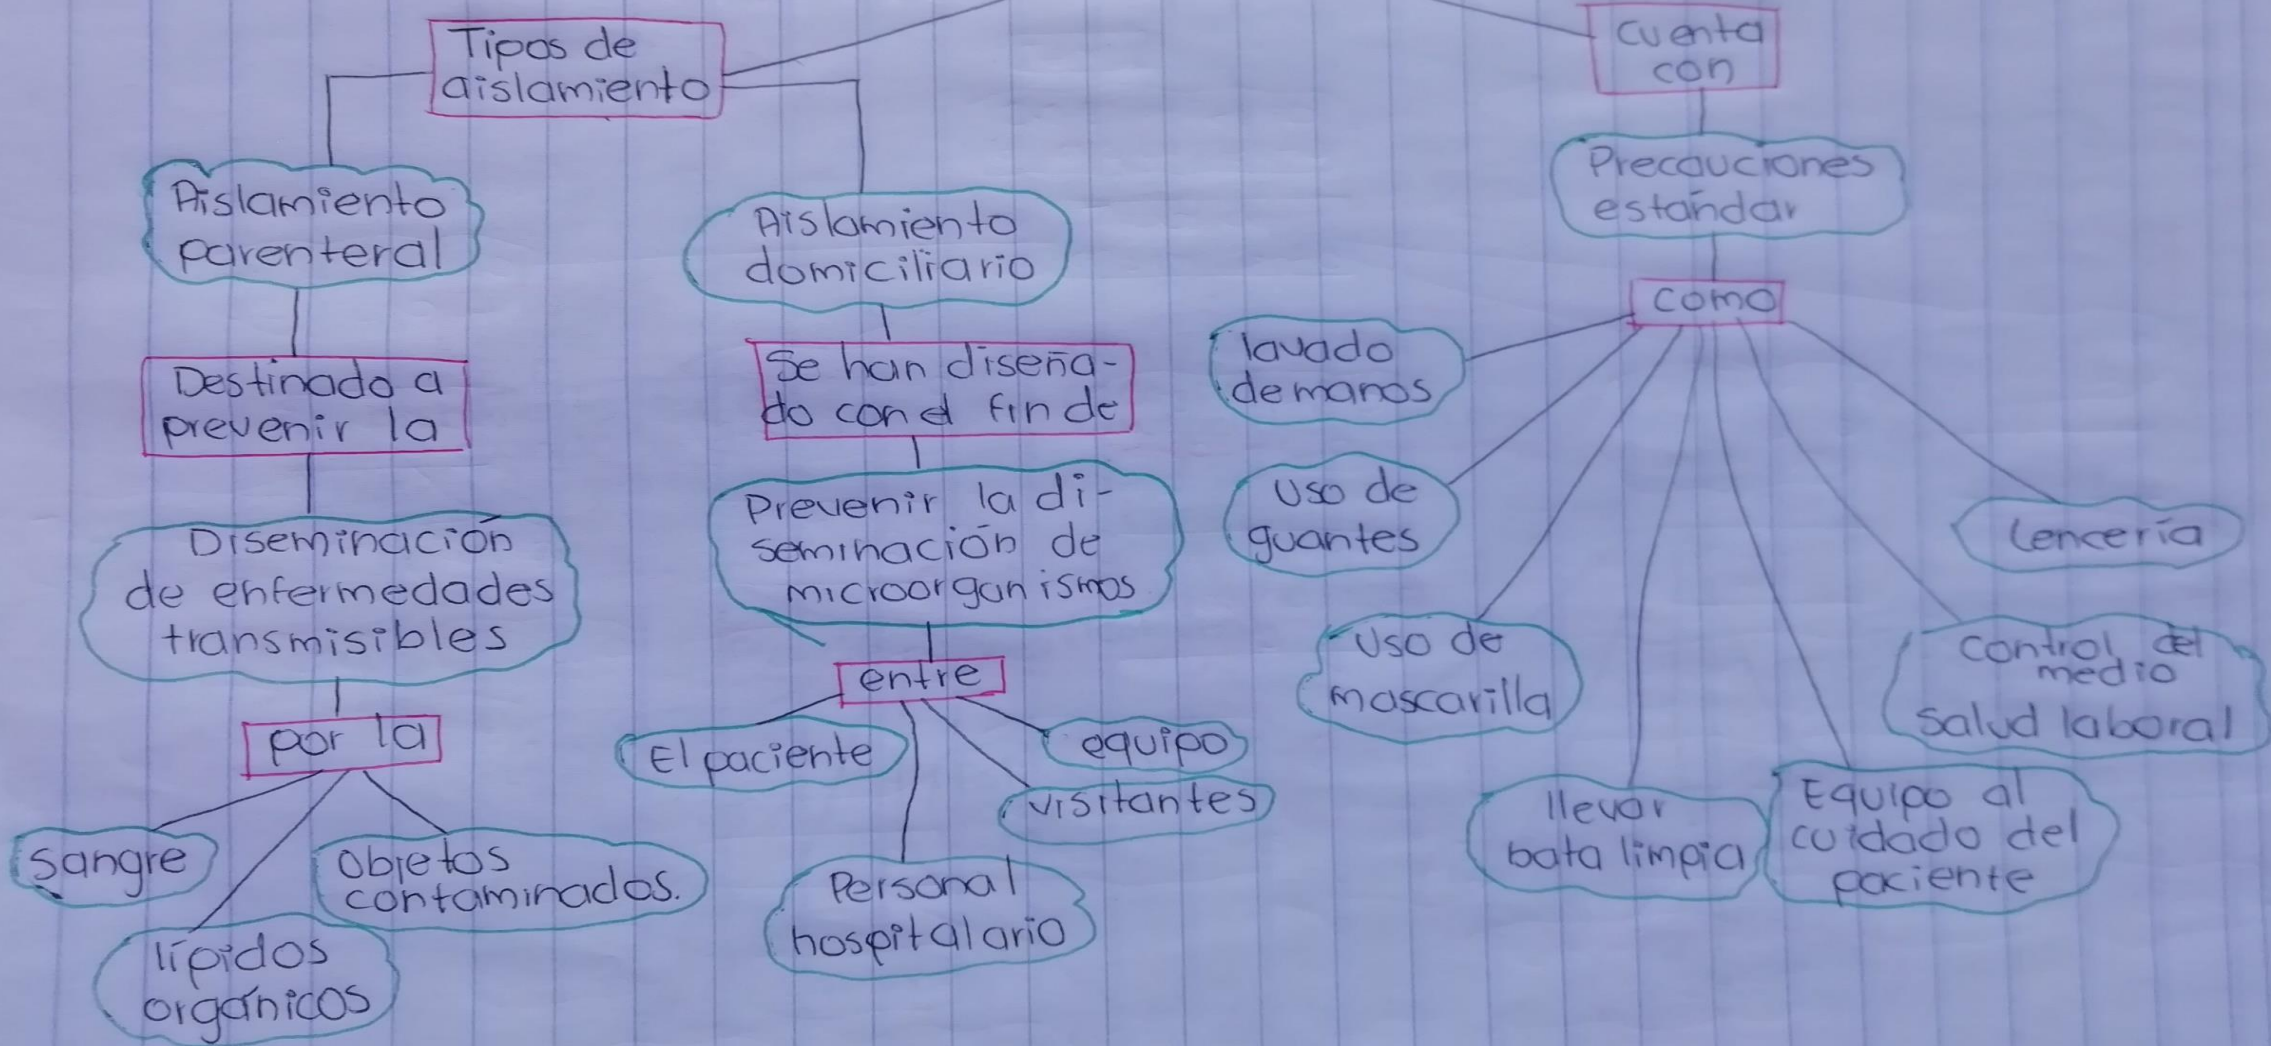 Tipos de
aislamiento
Aislamiento
parenteral
Destinado a
prevenir la
Diseminación
de enfermedades
transmisibles
por la
sangre
lípidos
orgánicos
objetos
contaminados.
Aislamiento
domiciliario
Se han diseña-
do con el fin de
Prevenir la di-
seminación de
microorganismos
entre
El paciente
Personal
hospitalario
visitantes
equipo
cuenta
con
Precauciones
estándar
como
lavado
de manos
Uso de
guantes
Uso de
mascarilla
llevar
bata limpia
Equipo al
cuidado del
paciente
control del
medio
salud laboral
lencería